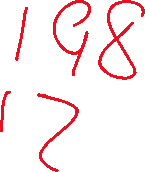 198
12